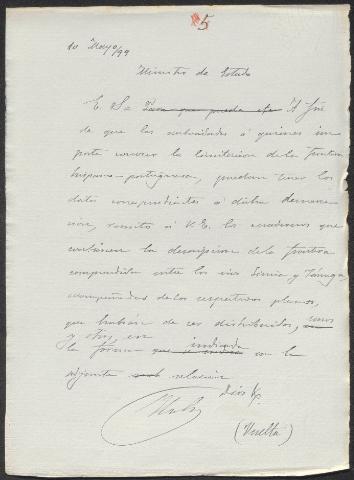 5
10 Mayo/99
Ministro de Estado
E. S. Para que pueda A fin
de que las autoridades á quienes im
porte conocer la limitacion de la frontera
hispano-portuguesa, puedan tener los
datos correspondientes á dicha demarca
cion, remito á V.E. los cuadernos que
contienen la descripcion de la frontera
comprendida entre los rios Limia y
acompañados de los respectivos planos,
que habrán de ser distribuidos, unos
y otros, en indicada
la forma que se indica con la
adjunta relacion
Dios
(Vuelta)